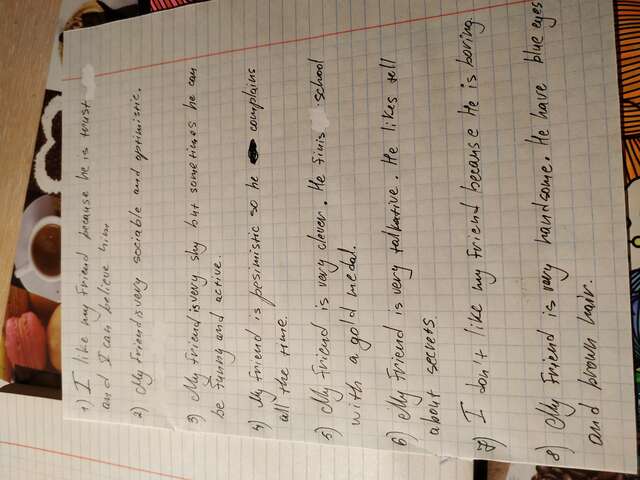 1) I like my friend because he is trust
and I can believe him
2) My friend is very sociable and optimistic.
3) My friend is very shy but sometimes he can
be funny and active.
4) My friend is pesimistic so he complains
all the time.
5) My friend is very clever. He finis school
with a gold medal.
6) My friend is very talkative. He likes tell
about secrets.
7) I don't like my friend because He is boring.
8) My friend is very handsome. He have blue eyes
and brown hair.